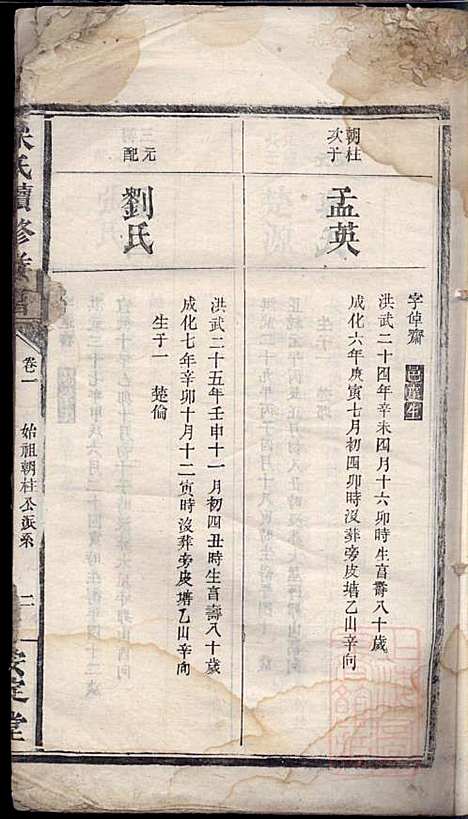 朝桂
次子
孟英
字倬齋 邑庠生
洪武二十四年辛未四月十六卯時生享壽八十歲
成化六年庚寅七月初四卯時沒葬旁皮塘乙山辛向
元
配
劉氏
洪武二十五年壬申十一月初四丑時生享壽八十歲
成化七年辛卯十月十二寅時沒葬旁皮塘乙山辛向
生子一 楚倫
氏續修族譜
卷一
始祖朝桂公派系
二
安定堂